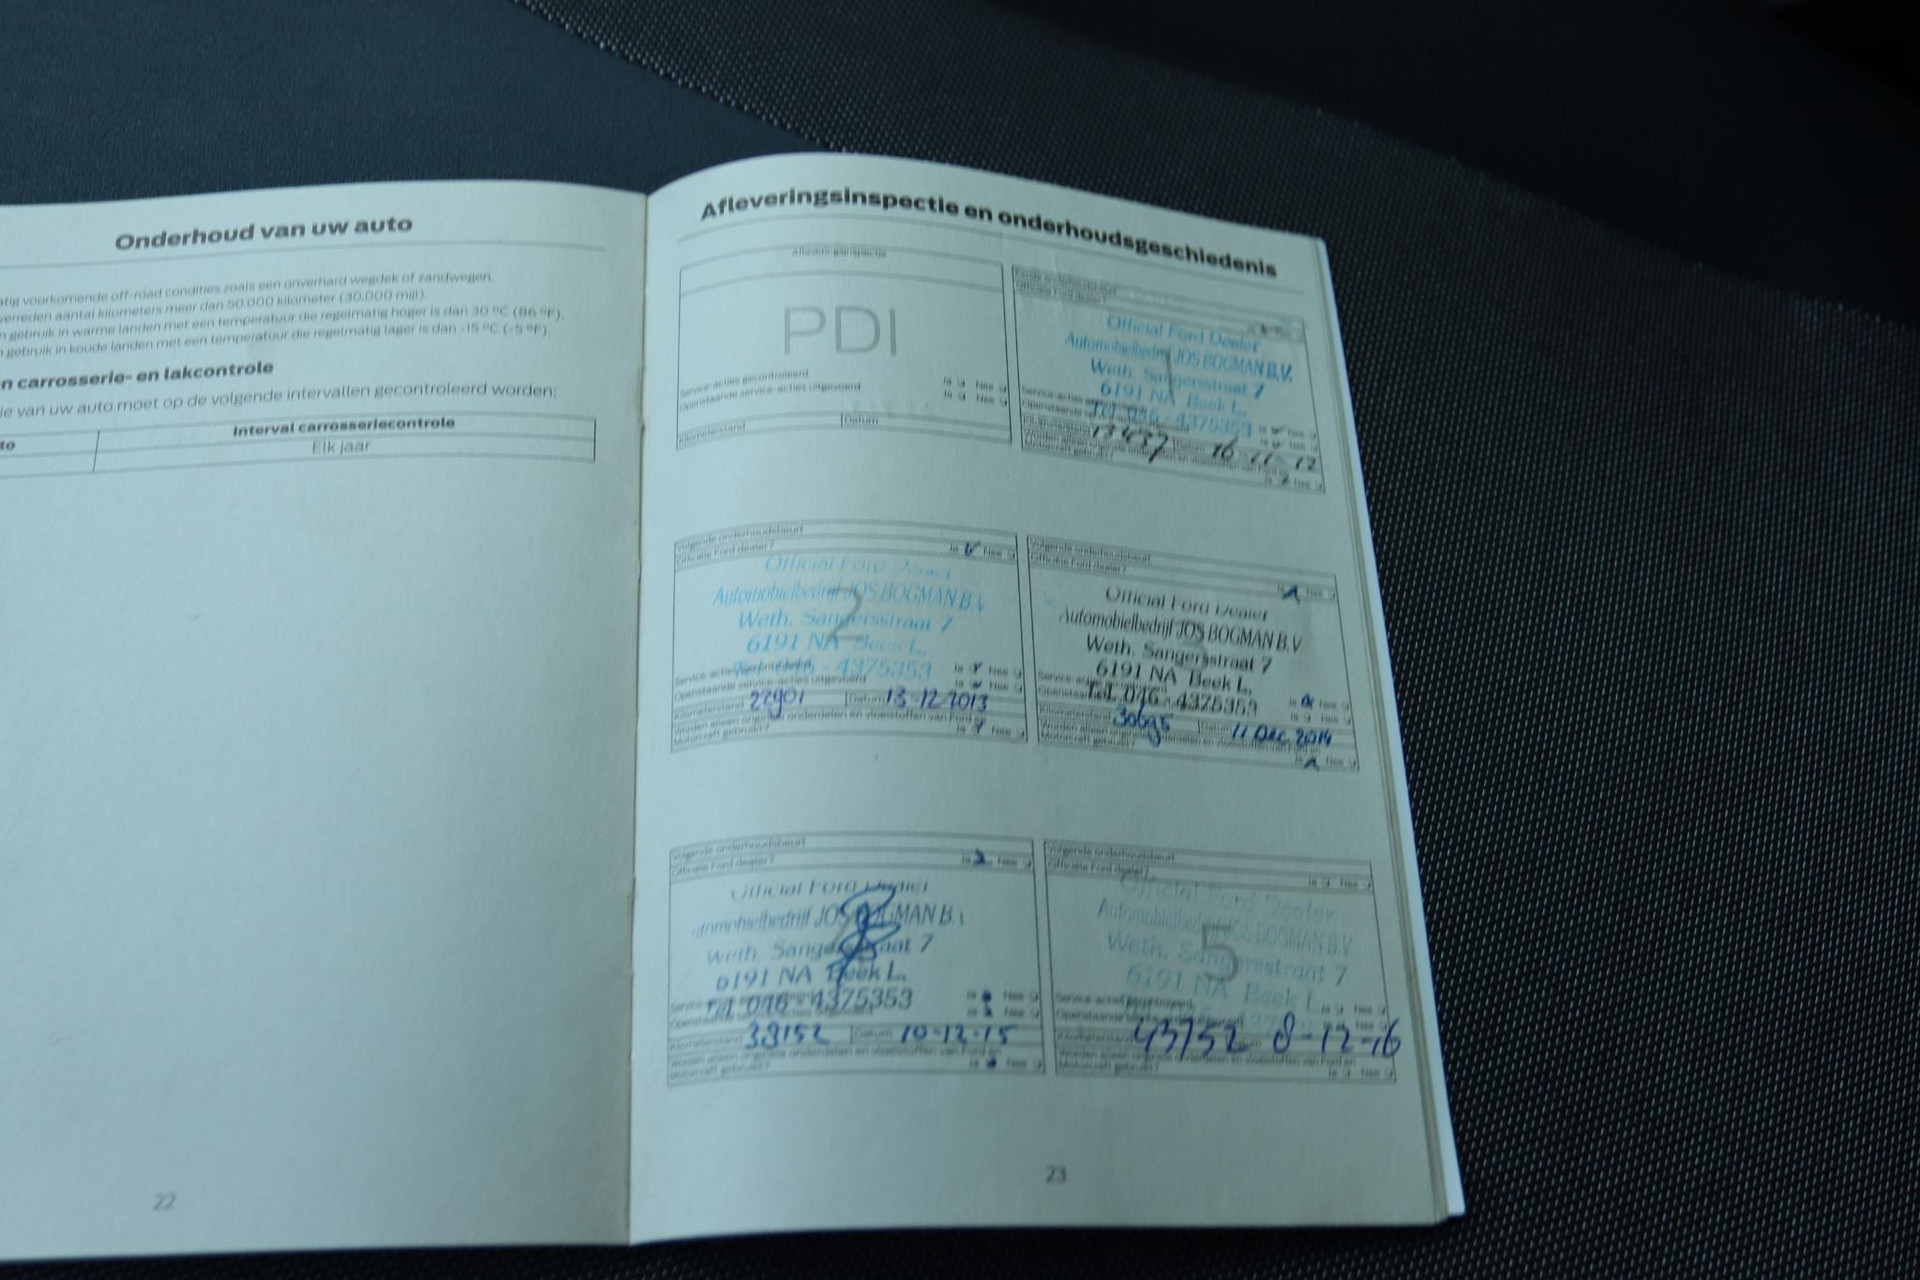 Onderhoud van uw auto
tig voorkomende off-road condities zoals een onverhard wegdek of zandwegen.
verreden aantal kilometers meer dan 50.000 kilometer (30.000 mijl).
gebruik in warme landen met een temperatuur die regelmatig hoger is dan 30 ºC (86 ºF).
gebruik in koude landen met een temperatuur die regelmatig lager is dan -15 ºC (-5 ºF).
n carrosserie- en lakcontrole
ie van uw auto moet op de volgende intervallen gecontroleerd worden:
to
Interval carrosseriecontrole
Elk jaar
22
Afleveringsinspectie en onderhoudsgeschiedenis
Afleveringsinspectie
PDI
Service-acties gecontroleerd Ja Nee
Openstaande service-acties uitgevoerd Ja Nee
Kilometerstand Datum
Eerste onderhoudsbeurt
Officiële Ford dealer?
1
Official Ford Dealer
Automobielbedrijf JOS BOGMAN B.V.
Weth. Sangersstraat 7
6191 NA Beek L.
Tel. 046 - 4375353
13437 Datum 16-11-12
Ja Nee
Volgende onderhoudsbeurt
Officiële Ford dealer? Ja Nee
2
Official Ford Dealer
Automobielbedrijf JOS BOGMAN B.V
Weth. Sangersstraat 7
6191 NA Beek L.
Tel. 046 - 4375353
Service-acties gecontroleerd Ja Nee
Openstaande service-acties uitgevoerd Ja Nee
Kilometerstand 22901 Datum 13-12-2013
Worden alleen originele onderdelen en vloeistoffen van Ford en
Motorcraft gebruikt? Ja Nee
Volgende onderhoudsbeurt
Officiële Ford dealer?
Ja Nee
3
Official Ford Dealer
Automobielbedrijf JOS BOGMAN B.V.
Weth. Sangersstraat 7
6191 NA Beek L.
Tel. 046 - 4375353
Kilometerstand 30695 Datum 11 Dec 2014
Worden alleen originele onderdelen en vloeistoffen van Ford en
Motorcraft gebruikt? Ja Nee
Volgende onderhoudsbeurt
Officiële Ford dealer? Ja Nee
Official Ford Dealer
utomobielbedrijf JOS BOGMAN B.
Weth. Sangersstraat 7
6191 NA Beek L.
Tel. 046 - 4375353
Kilometerstand 38152 Datum 10-12-15
Worden alleen originele onderdelen en vloeistoffen van Ford en
Motorcraft gebruikt? Ja Nee
Volgende onderhoudsbeurt
Officiële Ford dealer? Ja Nee
5
Official Ford Dealer
Automobielbedrijf JOS BOGMAN B.V.
Weth. Sangersstraat 7
6191 NA Beek L.
Service-acties gecontroleerd Ja Nee
43752 8-12-16
Worden alleen originele onderdelen en vloeistoffen van Ford en
Motorcraft gebruikt? Ja Nee
23